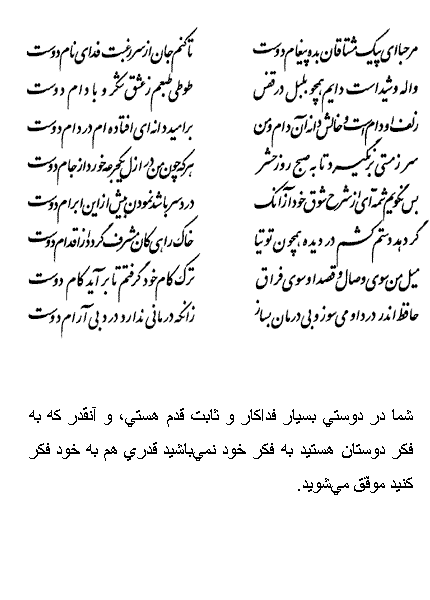 مرحبا ای پیک مشتاقان بده پیغام دوست تا کنم جان از سر رغبت فدای نام دوست
واله و شیداست دایم همچو بلبل در قفس طوطی طبعم ز عشق شکر و بادام دوست
زلف او دام است و خالش دانه آن دام و من بر امید دانه‌ای افتاده‌ام در دام دوست
سر ز مستی برنگیرد تا به صبح روز حشر هر که چون من در ازل یک جرعه خورد از جام دوست
بس نگویم شمه‌ای از شرح شوق خود از آنک دردسر باشد نمودن بیش از این ابرام دوست
گر دهد دستم کشم در دیده همچون توتیا خاک راهی کان مشرف گردد از اقدام دوست
میل من سوی وصال و قصد او سوی فراق ترک کام خود گرفتم تا برآید کام دوست
حافظ اندر درد او می‌سوز و بی‌درمان بساز زانکه درمانی ندارد درد بی‌آرام دوست
شما در دوستي بسیار فداکار و ثابت قدم هستي، و آنقدر که به
فکر دوستان هستید به فکر خود نمي‌باشید قدري هم به خود فکر
کنید موفق مي‌شوید.